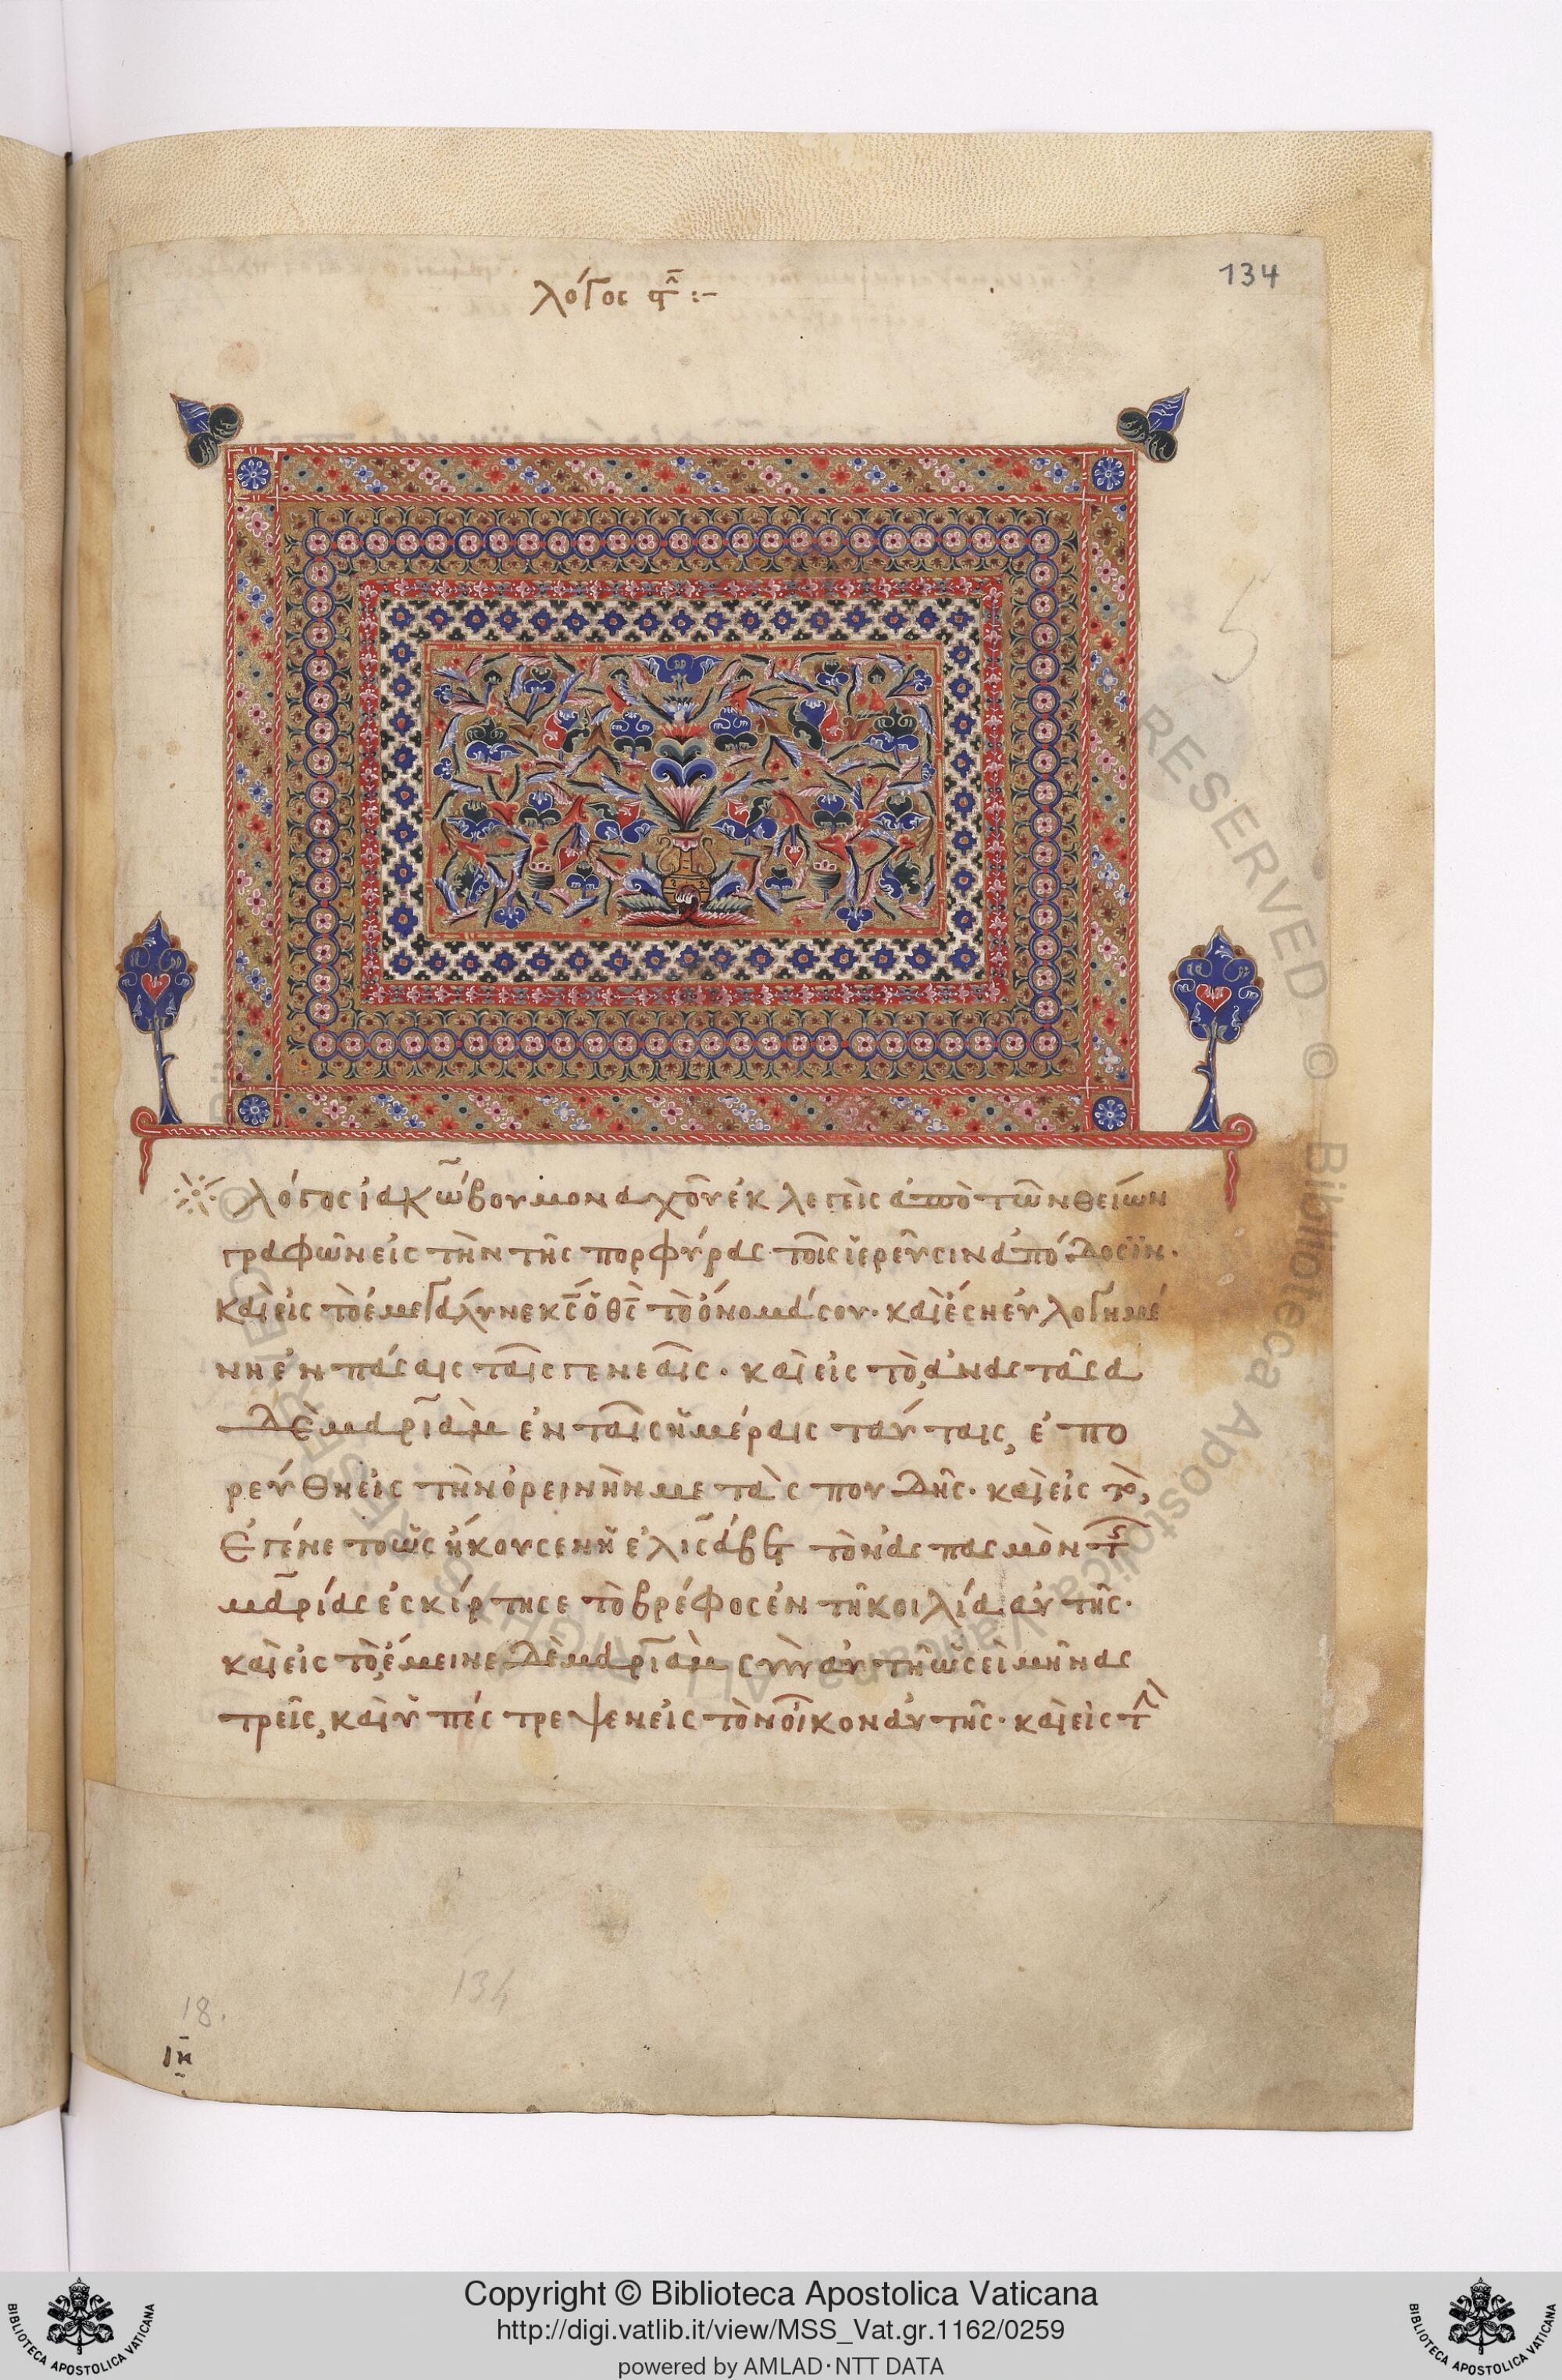 λόγος
134
λόγος ἰακώβου μοναχοῦ ἐκλεγεὶς ἀπὸ τῶν θείων
γραφῶν εἰς τὴν τῆς πορφύρας τοῖς ἱερεῦσιν ἀπόδοσϊν·
καὶ εἰς τὸ ἐμεγάλυνε κ̅ς̅ ὁ θ̅ς̅ τὸ ὄνομά σου· καὶ ἔση εὐλογημέ
νη ἐν πάσαις ταῖς γενεαῖς· καὶ εἰς τὸ, ἀναστᾶσα
δὲ μαριὰμ ἐν ταῖς ἡμέραις ταύταις, ἐπο
ρεύθη εἰς τὴν ὀρεινὴν μετὰ σπουδῆς· καὶ εἰς τὸ,
ἐγένετο ὡς ἤκουσεν ἡ ἐλισάβετ τὸν ἀσπασμὸν τ
μαρίας ἐσκίρτησε τὸ βρέφος ἐν τῇ κοιλίᾳ αὐτῆς·
καὶ εἰς τὸ, ἔμεινε δὲ μαριὰμ σὺν αὐτῇ ὡσεὶ μῆνας
τρεῖς, καὶ ὑπέστρεψεν εἰς τὸν οἶκον αὐτῆς· καὶ εἰς τ
134
18.
ιη
RESERVED © Biblioteca Apostolica Vaticana
Copyright © Biblioteca Apostolica Vaticana
http://digi.vatlib.it/view/MSS_Vat.gr.1162/0259
powered by AMLAD·NTT DATA
BIBLIOTECA APOSTOLICA VATICANA
BIBLIOTECA APOSTOLICA VATICANA